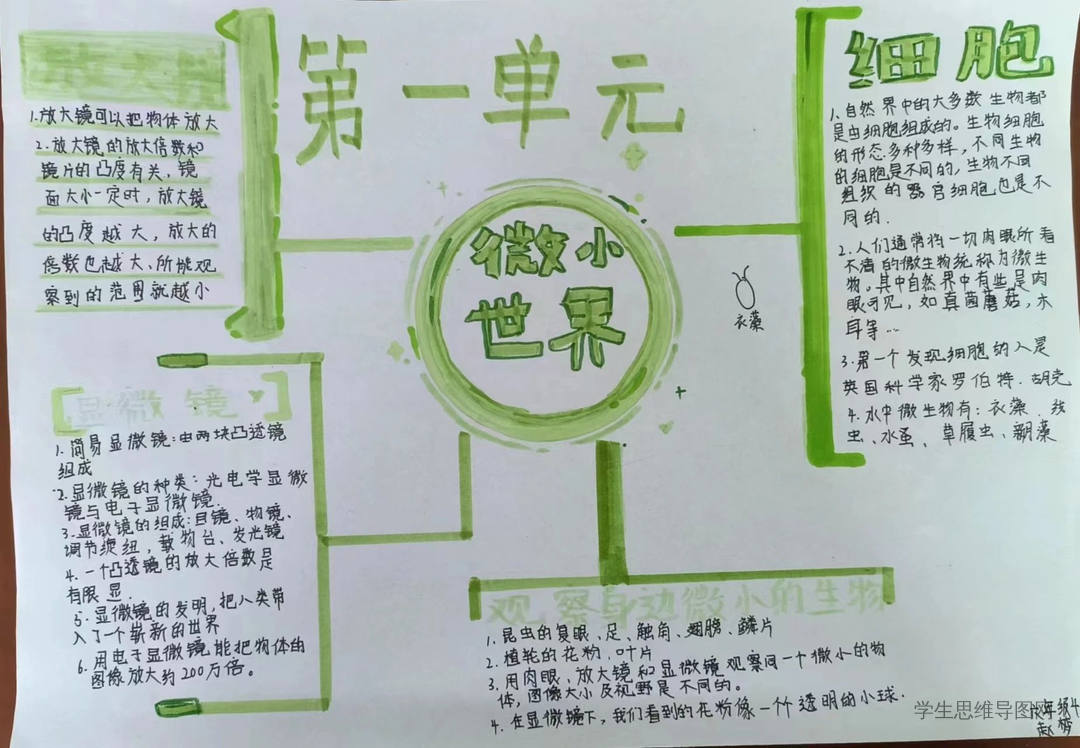 第一单元
微小
世界
放大镜
1.放大镜可以把物体放大
2.放大镜的放大倍数和
镜片的凸度有关,镜
面大小一定时,放大镜
的凸度越大,放大的
倍数也越大、所能观
察到的范围就越小
显微镜
1.简易显微镜:由两块凸透镜
组成
2.显微镜的种类:光电学显微
镜与电子显微镜.
3.显微镜的组成:目镜、物镜、
调节旋纽,载物台、反光镜
4.一个凸透镜的放大倍数是
有限显.
5.显微镜的发明,把人类带
入了一个崭新的世界
6.用电子显微镜能把物体的
图像放大约200万倍。
细胞
1、自然界中的大多数生物都
是由细胞组成的。生物细胞
的形态多种多样,不同生物
的细胞是不同的,生物不同
组织的器官细胞也是不
同的.
2.人们通常将一切肉眼所看
不清的微生物统称为微生
物。其中自然界中有些是肉
眼可见,如真菌蘑菇,木
耳等…
3.第一个发现细胞的人是
英国科学家罗伯特.胡克
4.水中微生物有:衣藻、线
虫、水蚤、草履虫、新藻
衣藻
观察身边微小的生物
1.昆虫的复眼、足、触角、翅膀、鳞片
2.植轮的花粉.叶片
3.用肉眼、放大镜和显微镜观察同一个微小的物
体,图像大小及视野是不同的。
4.在显微镜下,我们看到的花粉像一个个透明的小球.
学生思维导图网